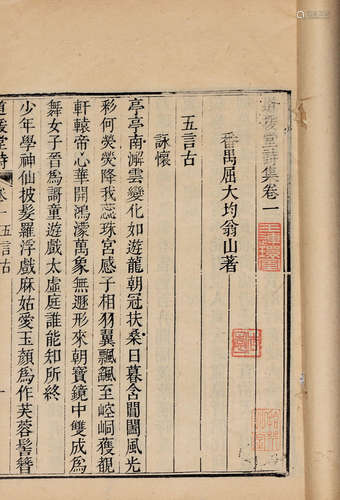 道援堂詩集卷一
番禺屈大均翁山著
五言古
詠懷
亭亭南澥雲變化如遊龍朝冠扶桑日暮含閶闔風光
彩何熒熒降我蕊珠宮感子相羽翼飄飄至崆峒獲覩
軒轅帝心華開鴻濛萬象無遯形來朝寶鏡中雙成爲
舞女子晉爲謌童遊戲太虛庭誰能知所終
少年學神仙披髮羅浮戲麻姑愛玉顏爲作芙蓉髻簪
道援堂詩
卷一
五言古
一